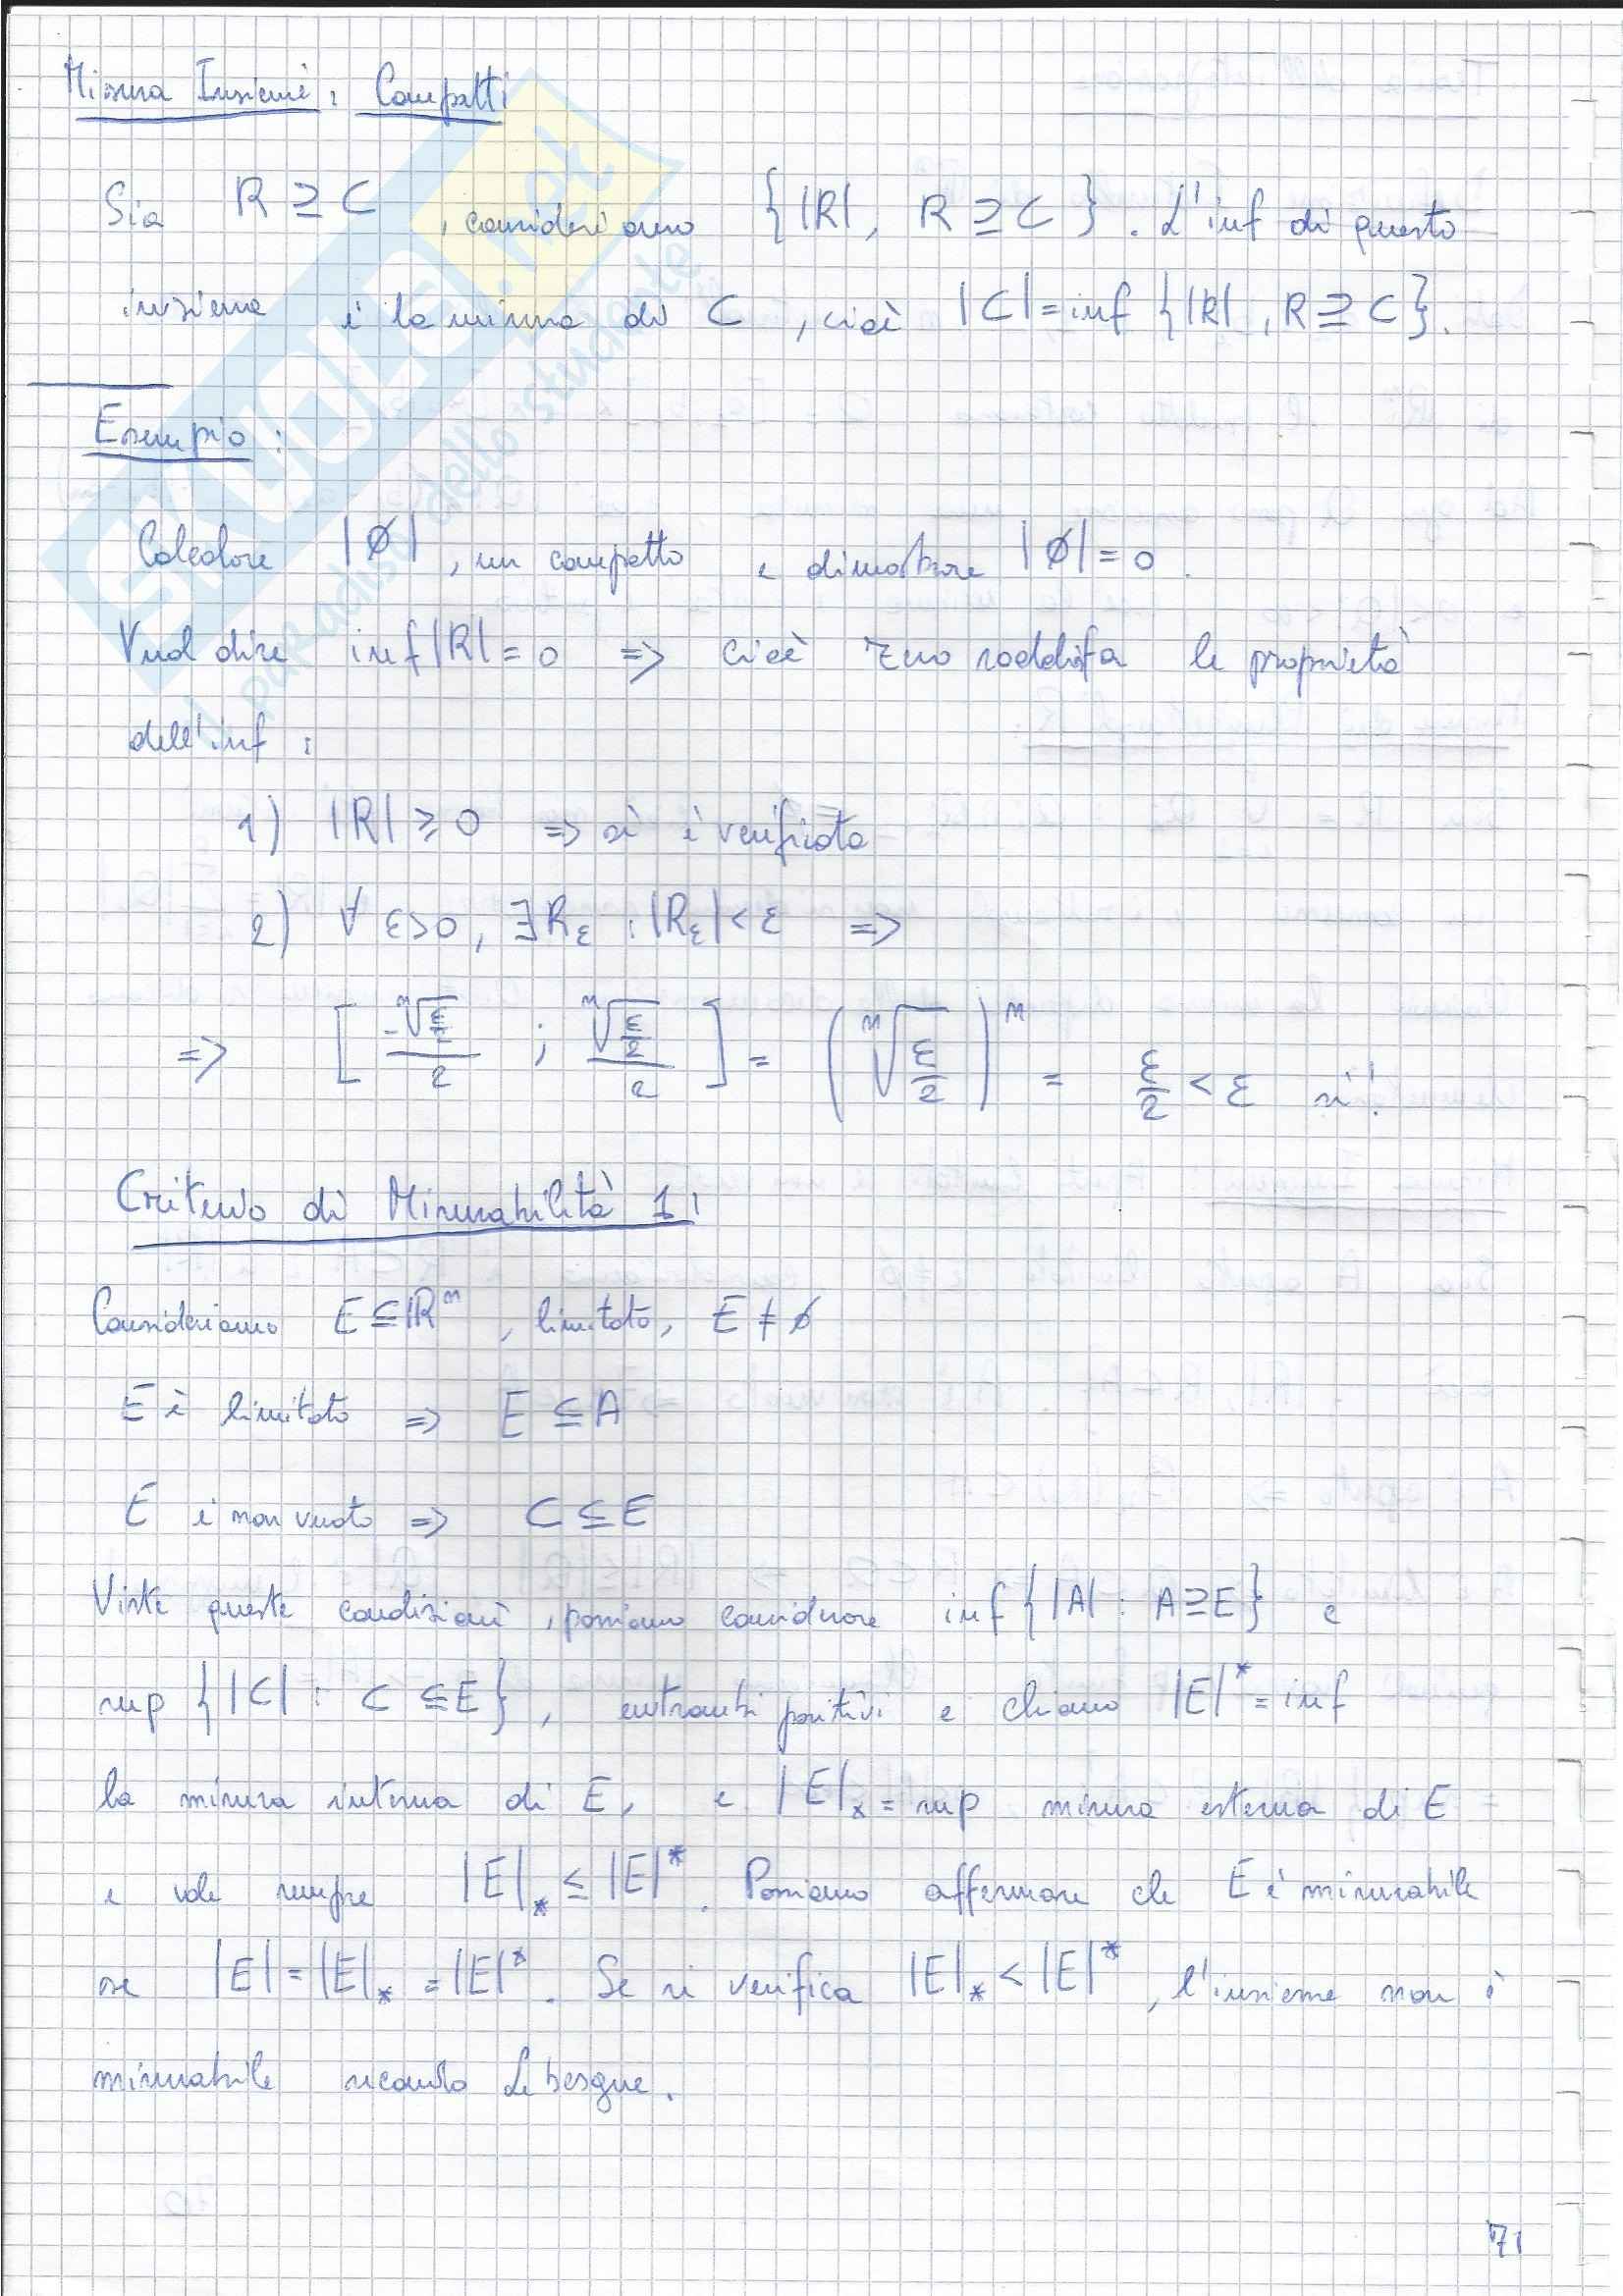 Misura Insiemi: Compatti
Sia R ⊇ C , consideriamo { |R| , R ⊇ C } . L'inf di questo
insieme è la misura di C , cioè |C| = inf { |R| , R ⊇ C } .
Esempio :
Calcolare |∅| , un compatto e dimostrare |∅| = 0 .
Vuol dire inf |R| = 0 => cioè zero soddisfa le proprietà
dell'inf :
1) |R| ≥ 0 => sì è verificata
2) ∀ ε>0 , ∃ R_ε : |R_ε| < ε =>
=> [ -ⁿ√(ε/2) / 2 ; ⁿ√(ε/2) / 2 ] = ( ⁿ√(ε/2) )ⁿ = ε/2 < ε sì!
Criterio di Misurabilità 1:
Consideriamo E ⊆ ℝⁿ , limitato, E ≠ ∅
E è limitato => E ⊆ A
E è non vuoto => C ⊆ E
Viste queste condizioni , possiamo considerare inf { |A| : A ⊇ E } e
sup { |C| : C ⊆ E } , entrambi positivi e chiamo |E|* = inf
la misura interna di E, e |E|_* = sup misura esterna di E
e vale sempre |E|_* ≤ |E|* . Possiamo affermare che E è misurabile
se |E| = |E|_* = |E|* . Se si verifica |E|_* < |E|* , l'insieme non è
misurabile secondo Lebesgue .
71
SKUOLA.net
il paradiso dello studente